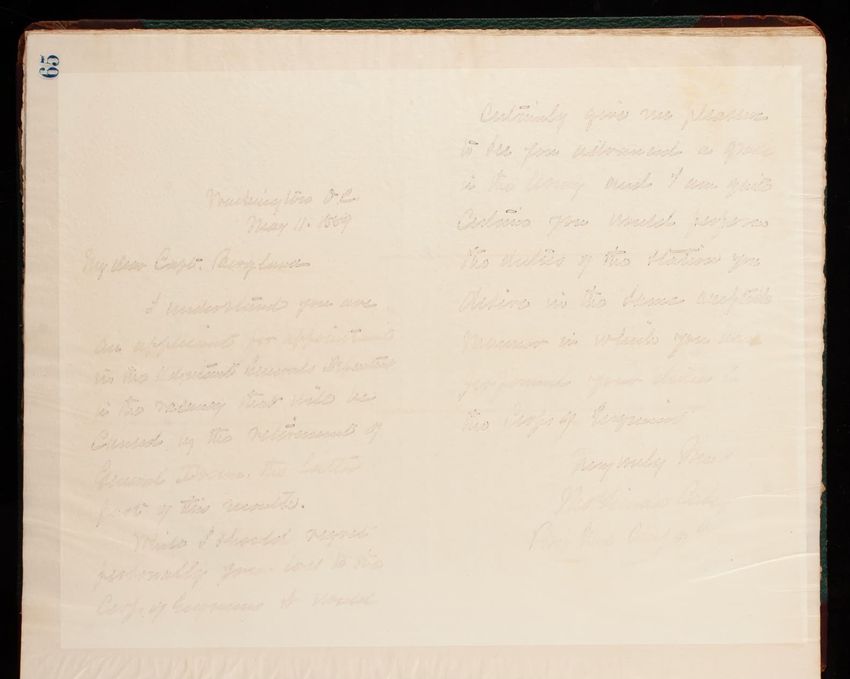 65
Washington D.C.
May 11. 1889
My dear Capt. Bergland
I understand you are
an applicant for appointment
in the Adjutant Generals Department
in the vacancy that will be
caused by the retirement of
General Drum, the latter
part of this month.
While I should regret
personally your loss to the
Corps of Engineers it would
certainly give me pleasure
to see you advanced a grade
in the Army and I am quite
certain you would perform
the duties of the station you
desire in the same acceptable
manner in which you have
performed your duties in
the Corps of Engineers
Very truly Yours
Thos Lincoln Casey
Brig. Gen.